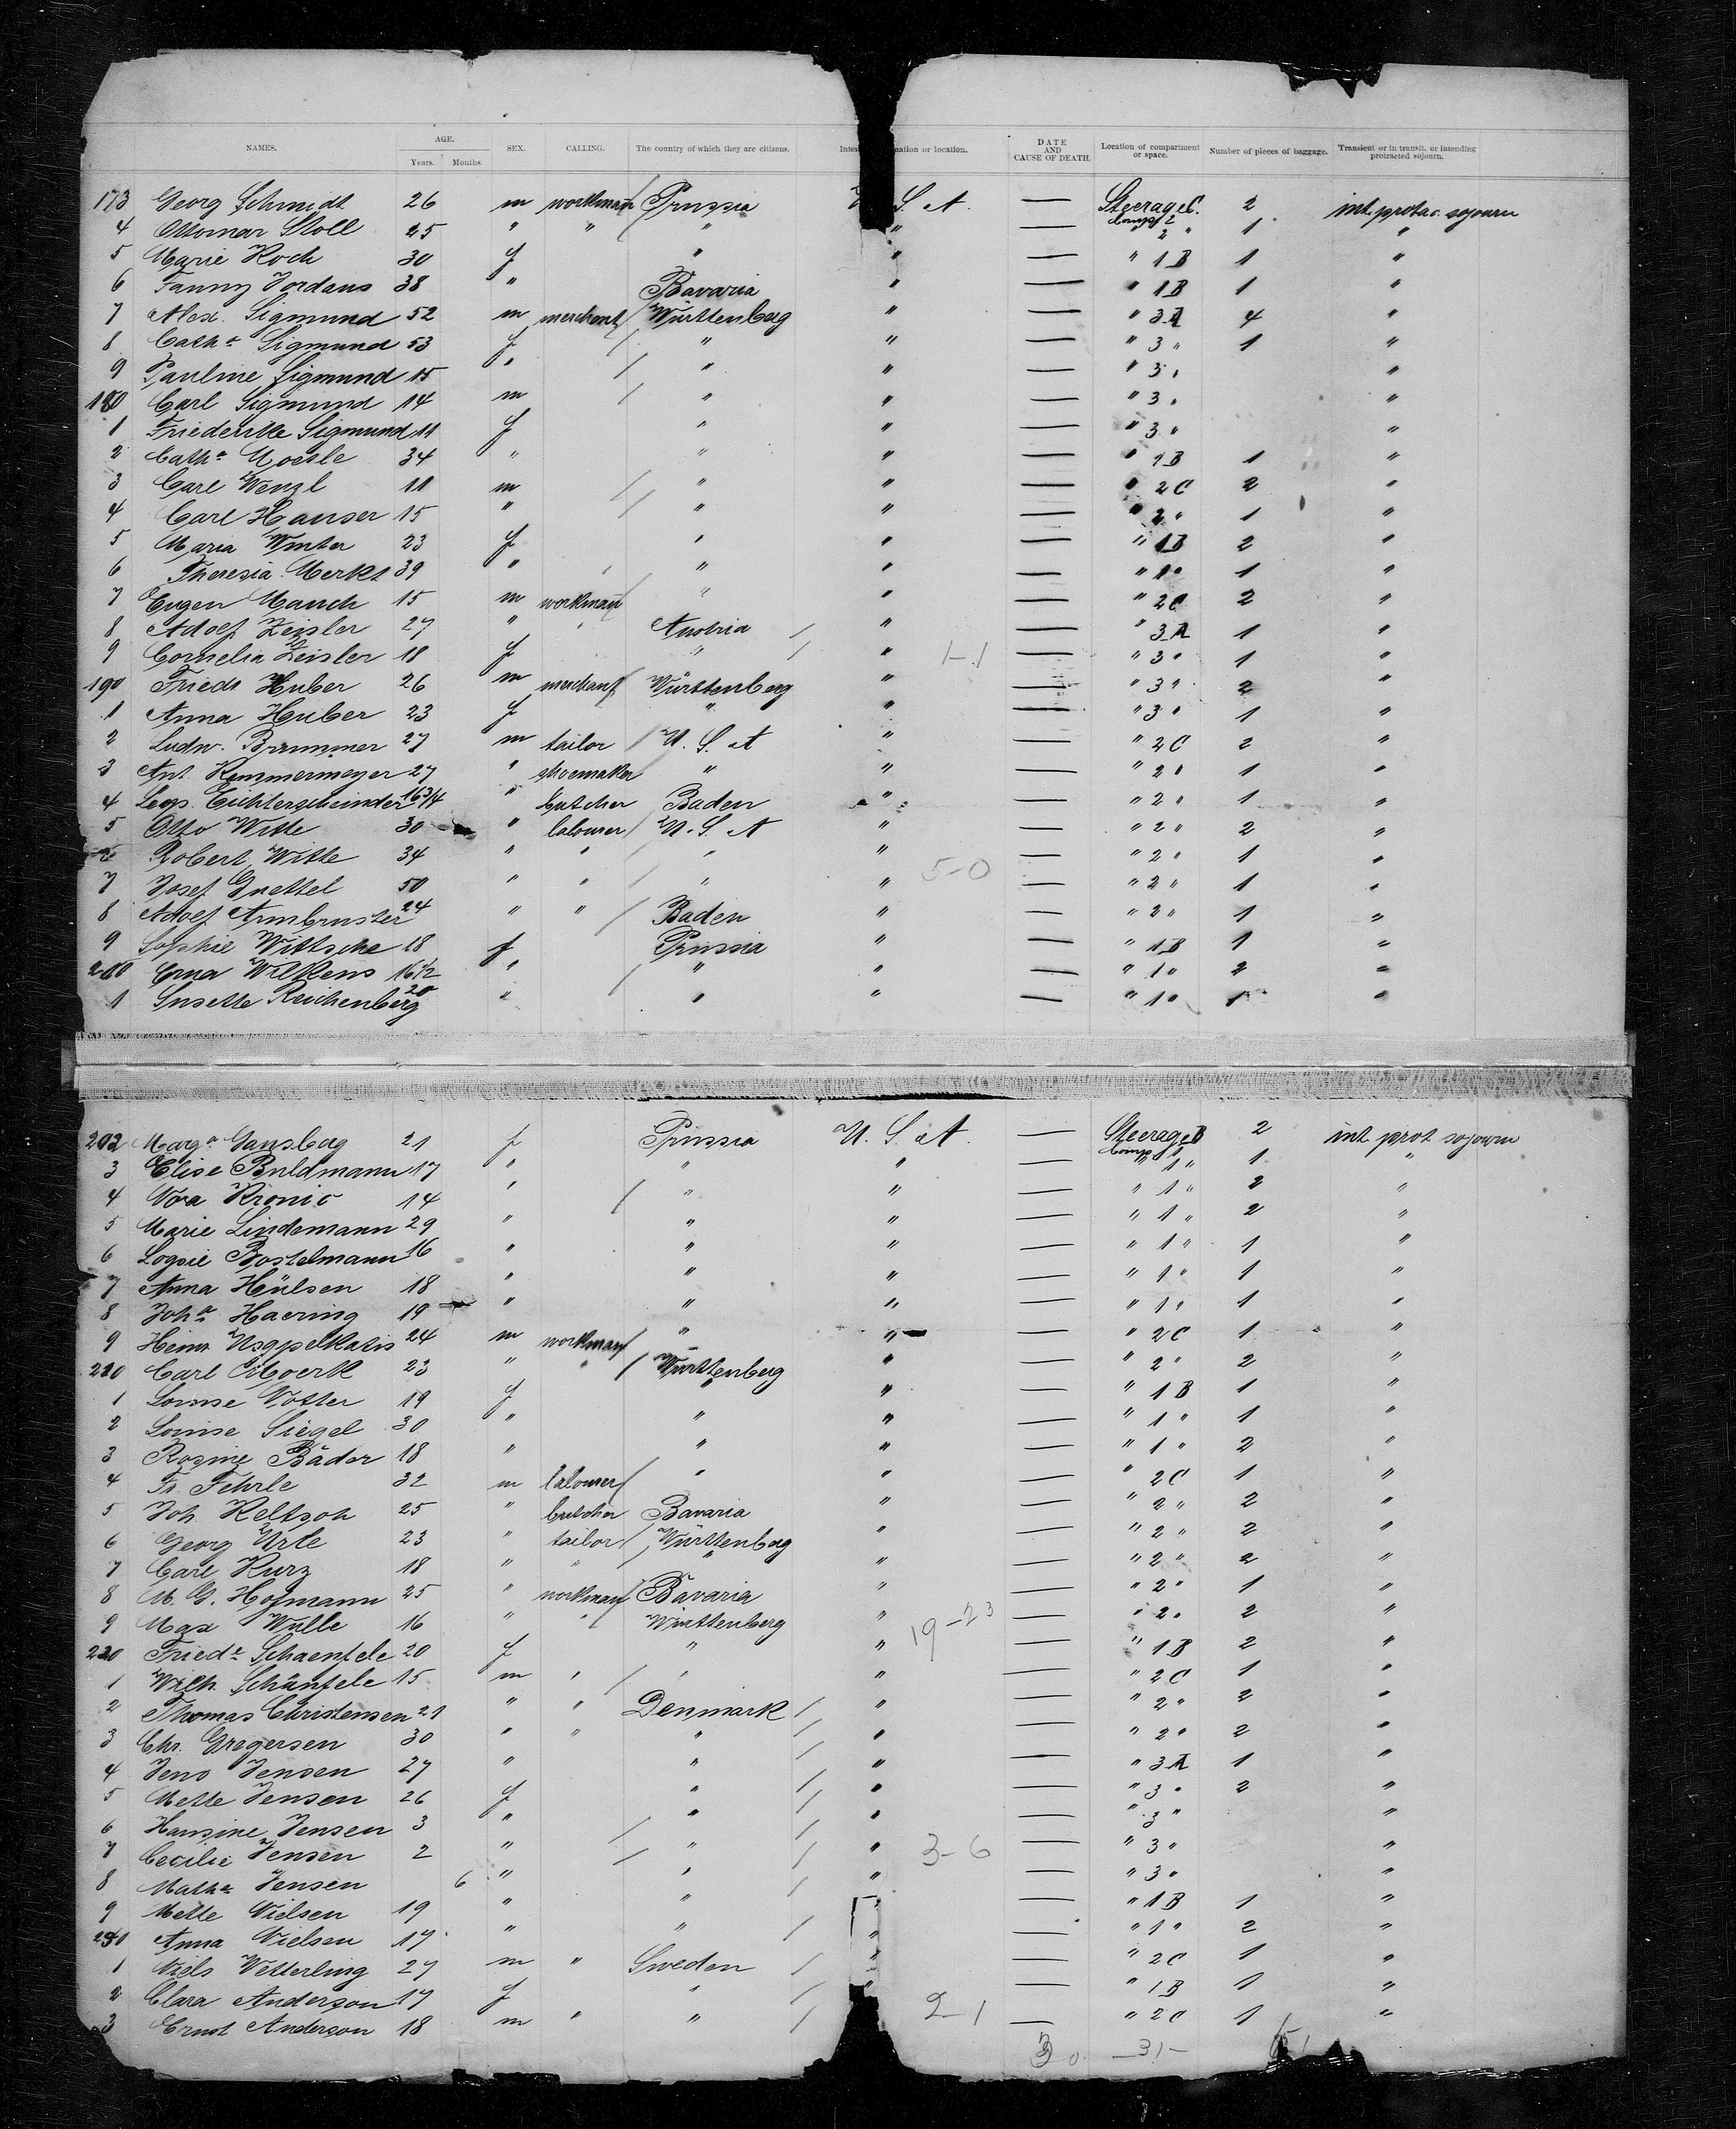 NAMES. AGE. Years. Months. SEX. CALLING. The country of which they are citizens. ation or location. DATE AND CAUSE OF DEATH. Location of compartment or space. Number of pieces of baggage. Transient or in transit, or intending protracted sojourn.
173 Georg Schmidt 26 m workman Prussia S. A. — Steerage C. Comp 2 2 int. protac. sojourn
4 Ottomar Stoll 25 " " " " — " 2 " 1 "
5 Marie Koch 30 f " " — " 1 B 1 "
6 Fanny Jordans 38 " Bavaria " — " 1 B 1 "
7 Alex. Sigmund 52 m merchant Württenberg " — " 3 A 4 "
8 Catha Sigmund 53 f " " — " 3 " 1 "
9 Pauline Sigmund 15 " " " — " 3 " "
180 Carl Sigmund 14 m " " — " 3 " "
1 Friederike Sigmund 11 f " " — " 3 " "
2 Catha 34 " " " — " 1 B 1 "
3 Carl Wenzl 11 m " " — " 2 C 2 "
4 Carl Hauser 15 " " " — " 2 " 1 "
5 Maria Winter 23 f " " — " 1 B 2 "
6 Theresia Merkt 39 " " " — " 1 " 1 "
7 Eugen Mauch 15 m workman " " — " 2 C 2 "
8 Adolf Zeisler 27 " " Austria " — " 3 A 1 "
9 Cornelia Zeisler 18 f " " 1-1 — " 3 " 1 "
190 Friedr Huber 26 m merchant Württenberg " — " 3 " 2 "
1 Anna Huber 23 f " " — " 3 " 1 "
2 Ludw. Brummer 27 m tailor U. S. A " — " 2 C 2 "
3 Ant. Kemmermeyer 27 " shoemaker " " — " 2 " 1 "
4 Leop. Eichterscheinder 16 3/4 " butcher Baden " — " 2 " 1 "
5 Otto Witte 30 " labourer U. S. A " — " 2 " 2 "
6 Robert Witte 34 " " " " — " 2 " 1 "
7 Josef Gnettel 50 " " " " 5-0 — " 2 " 1 "
8 Adolf Armbruster 24 " " Baden " — " 2 " 1 "
9 Sophie Wittsche 18 f Prussia " — " 1 B 1 "
200 Erna Wilkens 16 1/2 " " " — " 1 " 2 "
1 Susette Reichenberg 20 " " " — " 1 " 1 "
202 Marga Gansberg 21 f Prussia U. S. A. — Steerage B Comp 1 2 int. prot. sojourn
3 Elise Buldmann 17 " " " — " 1 " 1 "
4 Kronic 14 " " " — " 1 " 2 "
5 Marie Lindemann 29 " " " — " 1 " 2 "
6 Bostelmann 16 " " " — " 1 " 1 "
7 Anna Hülsen 18 " " " — " 1 " 1 "
8 Joha Haering 19 " " " — " 1 " 1 "
9 Heinr 24 m workman " " — " 2 C 1 "
210 Carl 23 " " Württenberg " — " 2 " 2 "
1 Louise Votter 19 f " " — " 1 B 1 "
2 Louise Siegel 30 " " " — " 1 " 1 "
3 Rosine Bäder 18 " " " — " 1 " 2 "
4 Fr. Fehrle 32 m labourer " " — " 2 C 1 "
5 Joh. 25 " butcher Bavaria " — " 2 " 2 "
6 Georg Urle 23 " tailor Württenberg " — " 2 " 2 "
7 Carl Kurz 18 " " " " — " 2 " 2 "
8 M. G. Hofmann 25 " workman Bavaria " — " 2 " 1 "
9 Max Wulle 16 " " Württenberg " 19-23 — " 2 " 2 "
220 Frieda Schaenfele 20 f " " — " 1 B 2 "
1 Wilh. Schänfele 15 m " " " — " 2 C 1 "
2 Thomas Christensen 21 " " Denmark " — " 2 " 2 "
3 Chr. Gregersen 30 " " " " — " 2 " 2 "
4 Jens Jensen 27 " " " — " 3 A 1 "
5 Mette Jensen 26 f " " — " 3 " 2 "
6 Hansine Jensen 3 " " " — " 3 " "
7 Cecilie Jensen 2 " " " 3-6 — " 3 " "
8 Matha Jensen 6 " " " — " 3 " "
9 Mette Nielsen 19 " " " — " 1 B 1 "
230 Anna Nielsen 17 " " " — " 1 " 2 "
1 Niels Wetterling 27 m " Sweden " — " 2 C 1 "
2 Clara Anderson 17 f " " — " 1 B 1 "
3 Ernst Anderson 18 m " " 2-1 — " 2 C 1 "
-31-